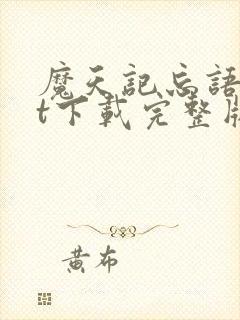 魔天記忘語
t下載完整版
黃布